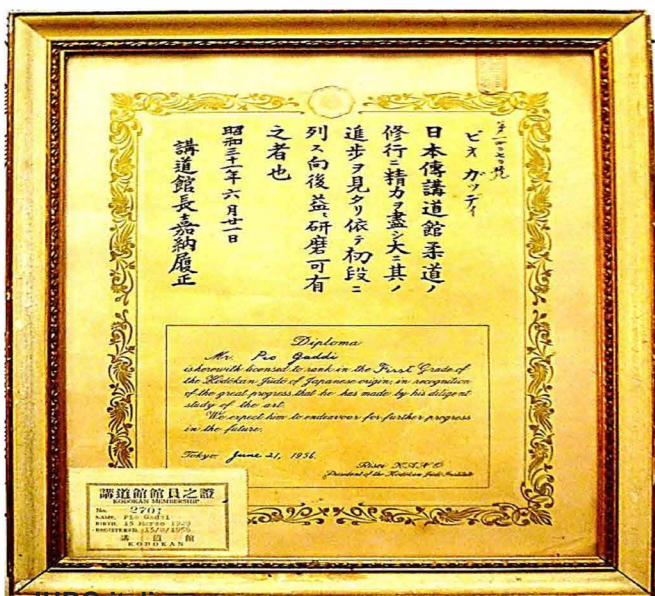 ピオ ガッディ
日本傳講道館柔道ノ
修行ニ精力ヲ盡シ大ニ其ノ
進歩ヲ見タリ依テ初段ニ
列ス向後益々研磨可有
之者也
昭和三十一年六月廿一日
講道館長嘉納履正
Diploma
Mr. Pio Gaddi
is herewith licensed to rank in the First Grade of
the Kodokan Judo of Japanese origin; in recognition
of the great progress that he has made by his diligent
study of the art.
We expect him to endeavor for further progress
in the future.
Tokyo June 21, 1956.
Risei KANO
President of the Kodokan Judo Institute
講道館館員之證
KODOKAN MEMBERSHIP
No. 2701
NAME, Pio Gaddi
BIRTH, 15 Marzo 1929
REGISTERED, 15/8/1956
講道館
KODOKAN